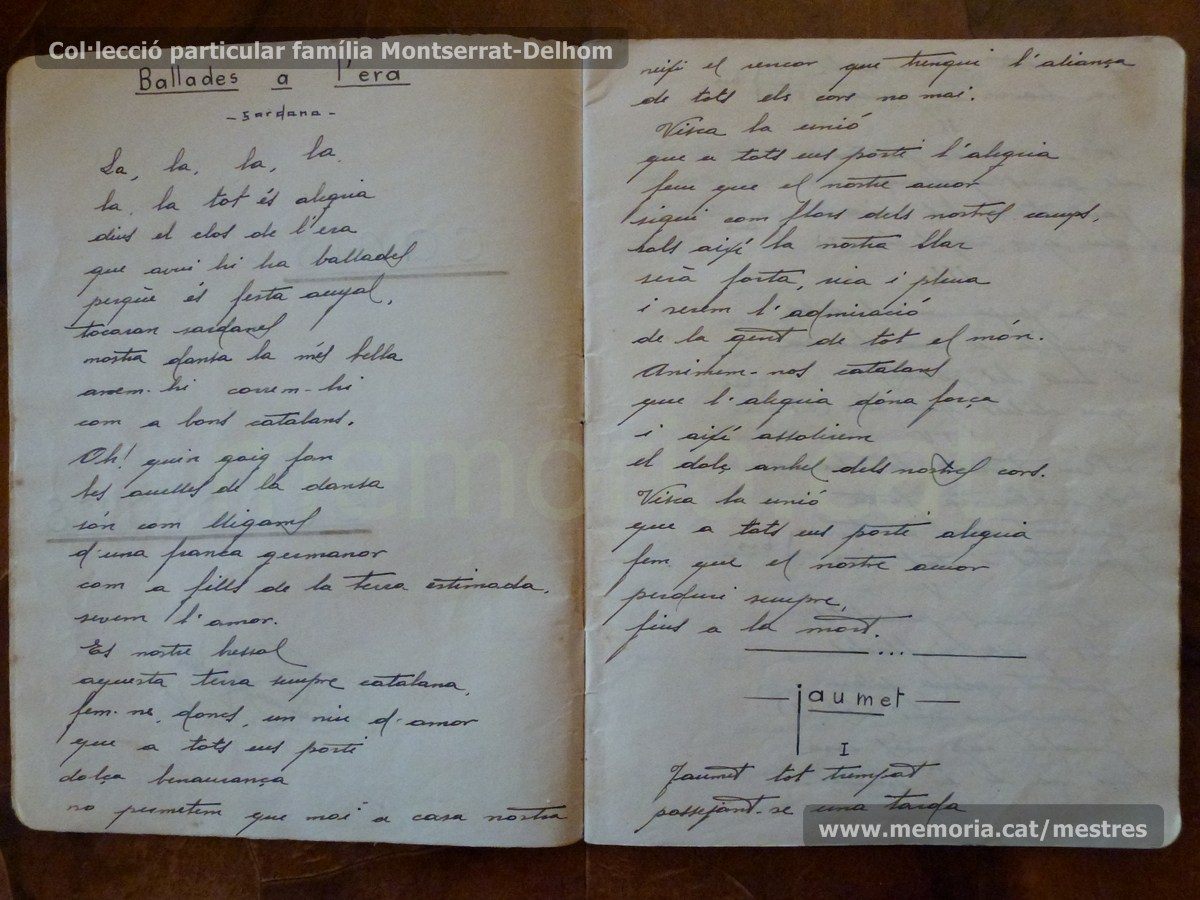 Col·lecció particular família Montserrat-Delhom
Ballades a l'era
- Sardana -
La, la, la, la
la, la tot és alegria
dius el clos de l'era
que avui hi ha ballades
perquè és festa anyal,
tocaran sardanes
nostra dansa la més bella
anem-hi correm-hi
com a bons catalans.
Oh! quin goig fan
les anelles de la dansa
són com lligams
d'una franca germanor
com a fills de la terra estimada,
servem l'amor.
Es nostre bressol
aquesta terra sempre catalana,
fem-ne, doncs, un niu d'amor
que a tots ens porti
dolça benaurança
no permetem que mai a casa nostra
neixi el rencor que trenqui l'aliança
de tots els cors no mai.
Visca la unió
que a tots ens porti l'alegria
fem que el nostre amor
sigui com flors dels nostres camps,
sols aixi la nostra llar
serà forta, rica i plena
i serem l'admiració
de la gent de tot el món.
Animem-nos catalans
que l'alegria dóna força
i aixi assolirem
el dolç anhel dels nostres cors.
Visca la unió
que a tots ens porti alegria
fem que el nostre amor
perduri sempre,
fins a la mort.
...
- Jaumet -
I
Jaumet tot trempat
passejant-se una tarda
www.memoria.cat/mestres